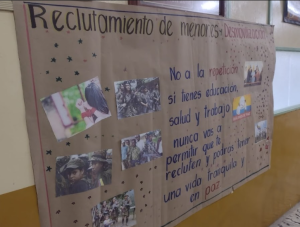 Reclutamiento de menores - Desmovilización
No a la repetición
si tienes educación,
salud y trabajo
nunca vas a
permitir que te
recluten, y podras tener
una vida tranquila y
en paz